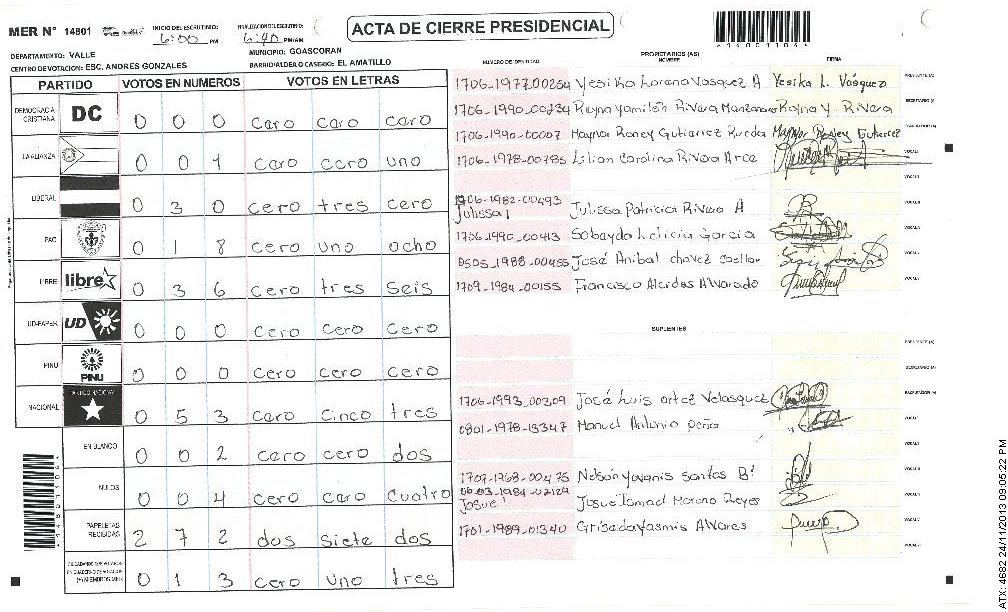 MER N° 14801
INICIO DEL ESCRUTINIO:
6:00 PM
FINALIZACION DEL ESCRUTINIO:
6:40 PM/AM
ACTA DE CIERRE PRESIDENCIAL
DEPARTAMENTO: VALLE
MUNICIPIO: GOASCORAN
CENTRO DE VOTACION: ESC. ANDRES GONZALES
BARRIO/ALDEA O CASERIO: EL AMATILLO
PARTIDO VOTOS EN NUMEROS VOTOS EN LETRAS
DEMOCRACIA CRISTIANA DC 0 0 0 caro caro caro
LA ALIANZA 0 0 1 caro cero uno
LIBERAL 0 3 0 cero tres cero
PAC 0 1 8 cero uno ocho
LIBRE libre 0 3 6 cero tres seis
UD-FAPER UD 0 0 0 cero cero cero
PINU PINU 0 0 0 cero cero cero
NACIONAL PARTIDO NACIONAL 0 5 3 caro cinco tres
EN BLANCO 0 0 2 caro cero dos
NULOS 0 0 4 cero caro cuatro
PAPELETAS RECIBIDAS 2 7 2 dos siete dos
CIUDADANOS QUE VOTARON EN CUADERNO DE VOTACION (+) MIEMBROS MER 0 1 3 cero uno tres
NUMERO DE IDENTIDAD PROPIETARIOS (AS) NOMBRE FIRMA
1706-1977-00254 Yesika Lorena Vasquez A Yesika L. Vásquez PRESIDENTE (A)
1706-1990-00234 Reyna Yamileth Rivera Manzanares Reyna Y. Rivera SECRETARIO (A)
1706-1990-00007 Maynor Roney Gutierrez Rueda Maynor Roney Gutierrez
1706-1978-00785 Lilian Carolina Rivera Arce VOCAL I
VOCAL II
1706-1982-00493 Julissa Patricia Rivera A
Julissa
1706-1990-00413 Sobayda Leticia Garcia
0505-1988-00455 José Anibal chavez
1709-1984-00155 Francisco Alcides Alvarado
SUPLENTES
PRESIDENTE (A)
SECRETARIO (A)
1706-1993-00309 José Luis ortez Velasquez
0801-1978-13347 Manuel Antonio peña
1707-1968-00475 Nelson Yovanis Santos B
Josue Ismael Moreno Reyes
Josue
1701-1989-01340 Griselda Yasmis Alvares
ATX: 4682 24/11/2013 09:05:22 PM